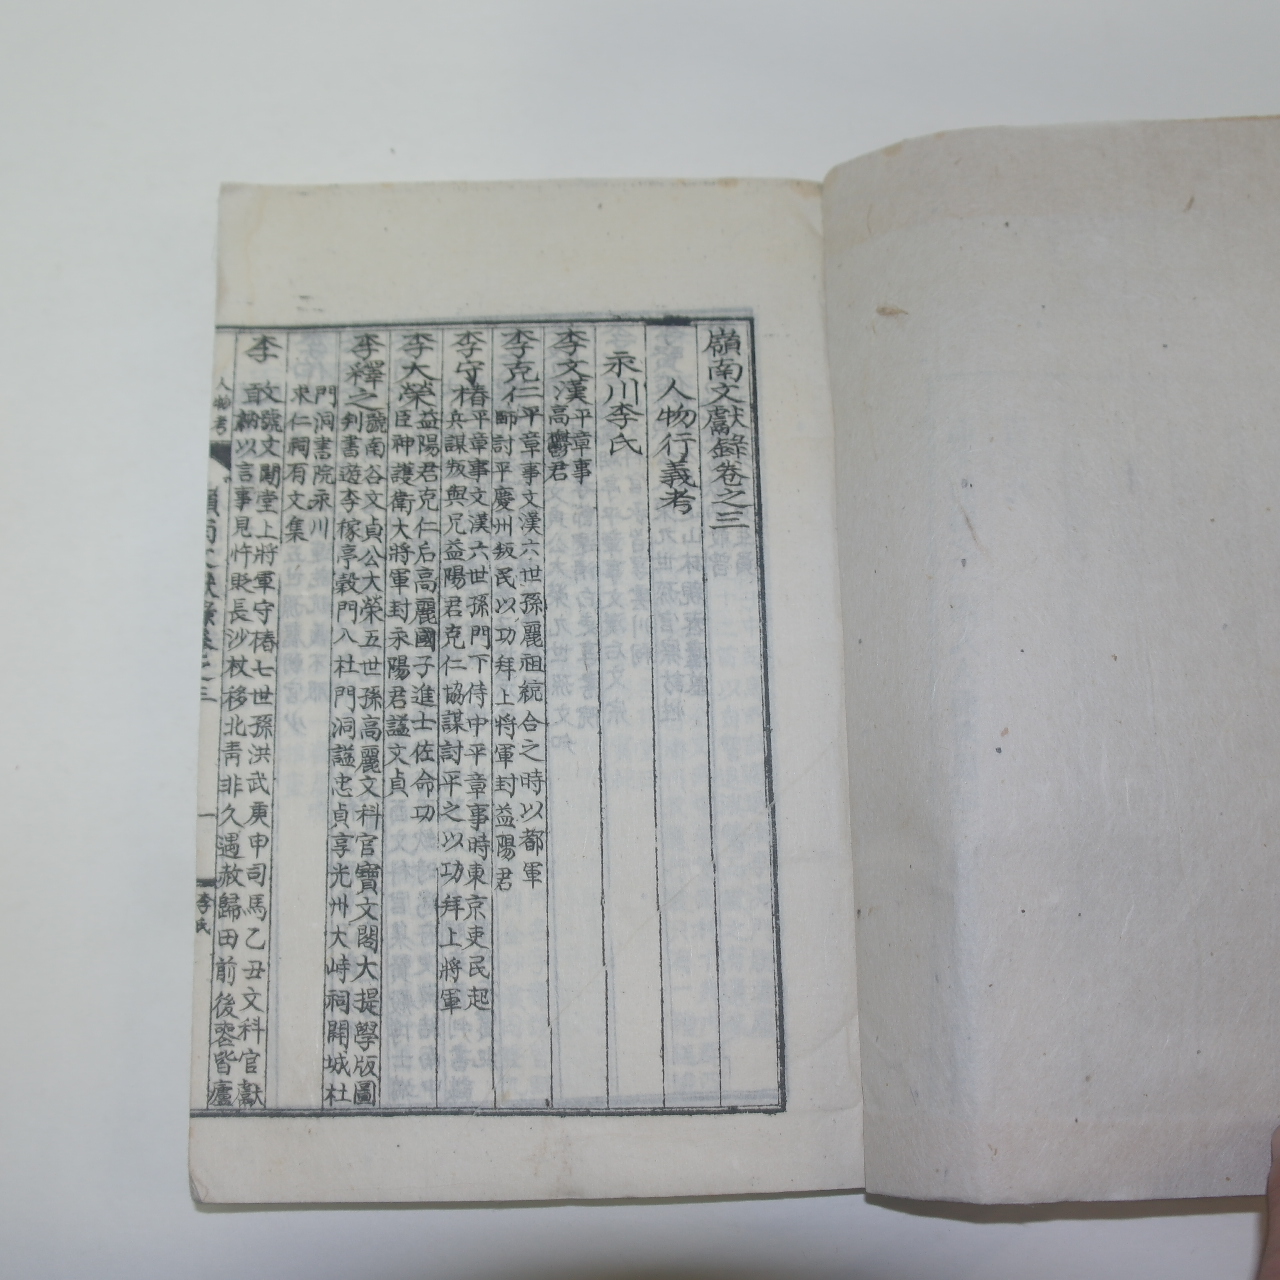 嶺南文獻錄卷之三
人物行義考
永川李氏
李文漢平章事
高鬱君
李克仁平章事文漢六世孫麗祖統合之時以都軍
師討平慶州叛民以功拜上將軍封益陽君
李守椿平章事文漢六世孫門下侍中平章事時東京吏民起
兵謀叛與兄益陽君克仁協謀討平之以功拜上將軍
李大榮益陽君克仁后高麗國子進士佐命功
臣神護衛大將軍封永陽君謚文貞
李釋之號南谷文貞公大榮五世孫高麗文科官寶文閣大提學版圖
判書遊李稼亭穀門八杜門洞謚忠貞享光州大峙祠開城杜
門洞書院永川
求仁祠有文集
李敢號文閒堂上將軍守椿七世孫洪武庚申司馬乙丑文科官獻
納以言事見忤貶長沙杖移北靑非久遇赦歸田前後喪皆廬
人物考
嶺南文獻錄卷之三
一
李氏